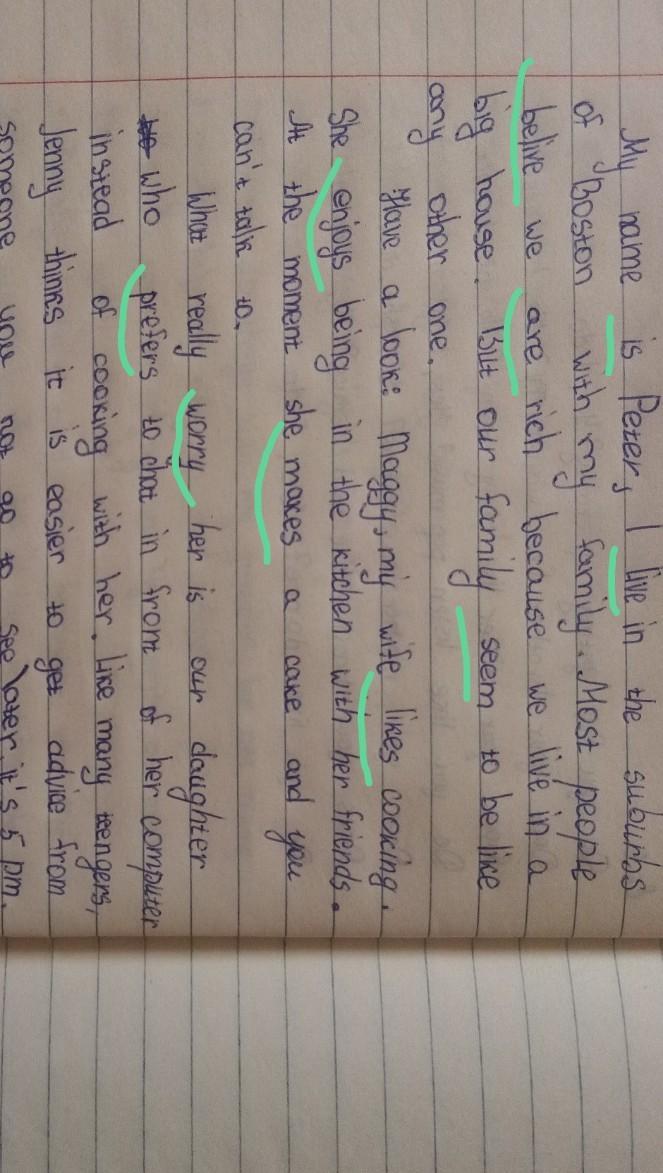 My name is Peter, I live in the suburbs
of Boston with my family. Most people
belive we are rich because we live in a
big house. But our family seem to be like
any other one.
Have a look: Maggy, my wife likes cooking.
She enjoys being in the kitchen with her friends.
At the moment she makes a cake and you
can't talk to.
What really worry her is our daughter
who prefers to chat in front of her computer
instead of cooking with her. Like many teengers,
Jenny thinks it is easier to get advice from
someone you not go to see later. it's 5 pm.